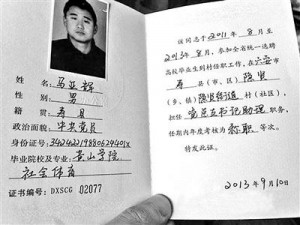 姓 名 马亚辉
性 别 男
籍 贯 寿县
政治面貌 中共党员
身份证号
毕业院校及专业 黄山学院
社会体育
证书编号 DXSCG 02077
该同志于2011年8月至
2013年8月,参加全省统一选聘
高校毕业生到村任职工作,在六安市
寿 县(市、区)
(乡、镇) 街道 村(社区),
担任党总支书记助理职务,
任期内年度考核为称职等次。
特发此证。
2013年9月10日